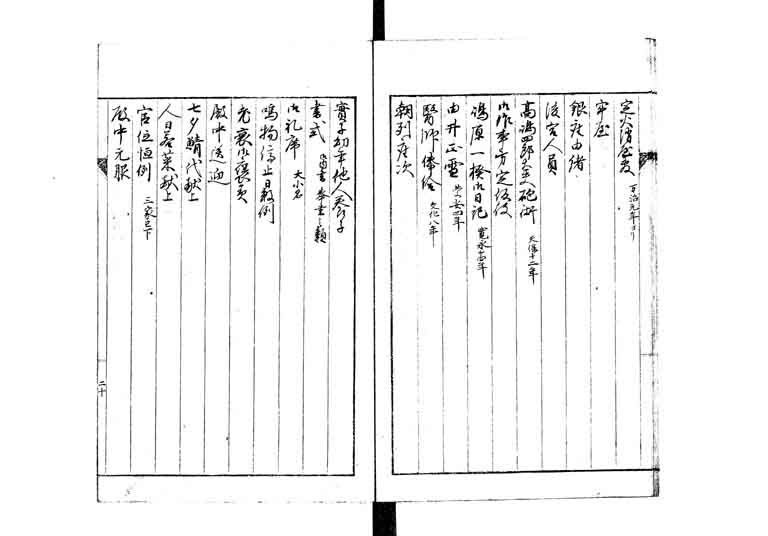 定火消屋敷 万治元年ヨリ
牢屋
銀座由緒
後宮人員
高嶋四郎太夫砲術 天保十二年
御作事方定仮役
嶋原一揆御日記 寛永十四年
由井正雪 慶安四年
医師俸給 文化八年
朝列座次
實子幼年他人養子
書式 留書奉書之類
御礼席 大小名
鳴物停止日数例
老衰御褒美
殿中送迎
七夕鯖代献上
人日若菜献上
官位恒例 三家已下
殿中元服
二十